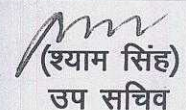 (श्याम सिंह)
उप सचिव